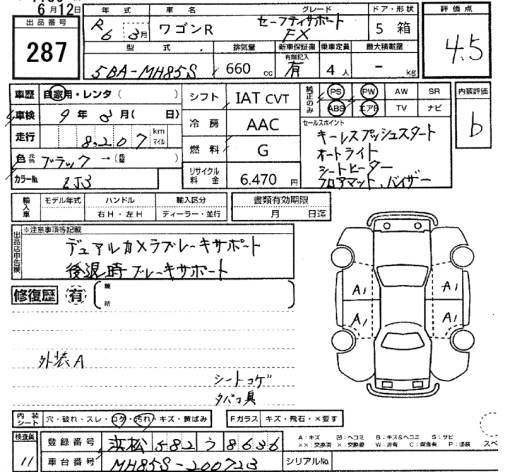 6月12日
出品番号
287
年式 車名 グレード ドア・形状
R6 3月 ワゴンR セーフティサポート FX 5 箱
型式 排気量 新車保証書 乗車定員 最大積載量
有無記入
5BA-MH85S 660 cc 有 4人 - kg
評価点
4.5
車歴 自家用・レンタ( )
車検 9年3月( 日)
走行 8,207 km マイル
色 元色 ブラック→( 色)
カラーNo. ZJ3
シフト IAT CVT
冷房 AAC
燃料 G
リサイクル料金 6,470円
純正のみ PS PW AW SR
ABS エアB TV ナビ
セールスポイント
キーレスプッシュスタート
オートライト
シートヒーター
フロアマット、バイザー
内装評価
b
輸入車 モデル年式 ハンドル 輸入区分 書類有効期限
右H・左H ディーラー・並行 月 日迄
出品店申告欄
※注意事項等記載
デュアルカメラブレーキサポート
後退時ブレーキサポート
修復歴 有 箇所
A1 A1
A1 A1
外装A
シートコゲ
タバコ臭
内装シート 穴・破れ・スレ・コゲ・汚れ・キズ・黄ばみ Fガラス キズ・飛石・×要す
検査員 11
登録番号 浜松 582 う 8636
車台番号 MH85S-200723 シリアルNo.
A:キズ B:キズ&ヘコミ S:サビ
W:波有 C:腐食有 P:要塗装
××:交換済 ×:交換要